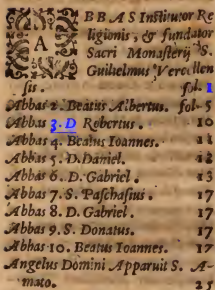 ABBAS Institutor Re
ligionis, & fundator
Sacri Monasterij S.
Guilhelmus Vercellen
sis. fol. 1
Abbas 2. Beatus Albertus. fol. 5
Abbas 3. D Robertus. 10
Abbas 4. Beatus Ioannes. 11
Abbas 5. D. Daniel. 12
Abbas 6. D. Gabriel. 13
Abbas 7. S. Paschasius. 17
Abbas 8. D. Gabriel. 17
Abbas 9. S. Donatus. 17
Abbas 10. Beatus Ioannes. 17
Angelus Domini Apparuit S. A-
mato. 25